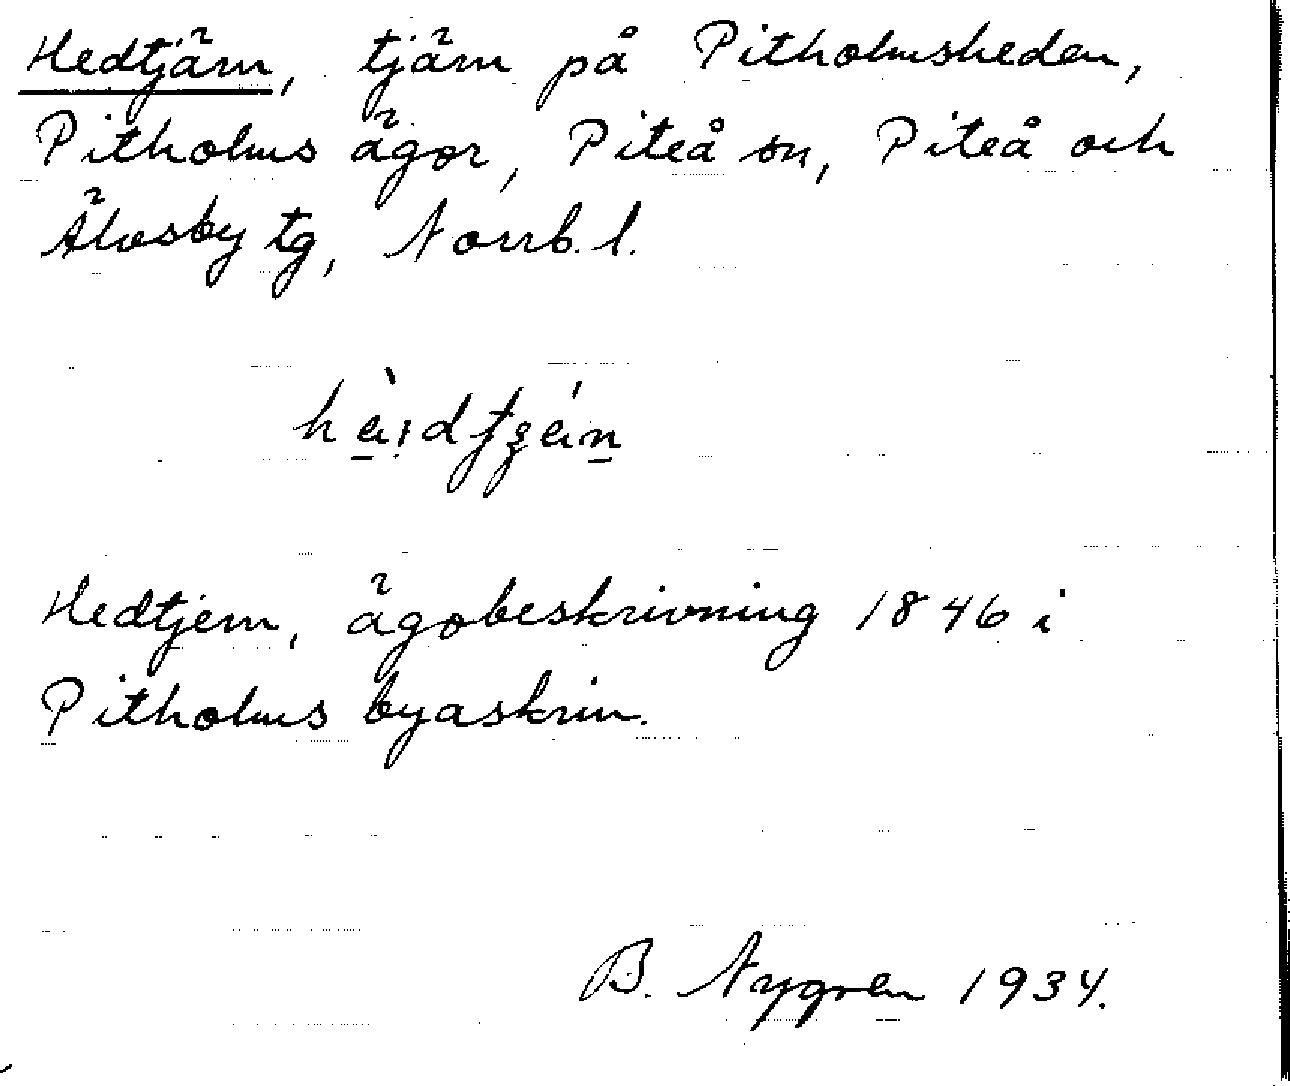 Hedtjärn, tjärn på Pitholmsheden,
Pitholms ägor, Piteå sn, Piteå och
Älvsby tg, Norrb. l.
Hedtjern, ägobeskrivning 1846 i
Pitholms byaskrin.
B. Nygren 1934.